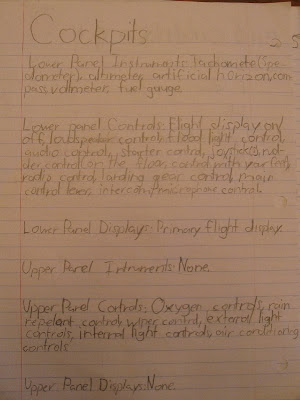 Cockpits
Lower Panel Instruments: Tachometer (spe-
dometer), altimeter, artificial horizon, com
pass, voltmeter, fuel gauge.
Lower panel Controls: Flight display on/
off, loudspeaker control, flood light control,
audio control, starter control, joystick, rud-
der, control on the floor, control with your feet,
radio control, landing gear control, main
control lever, intercom/microphone control.
Lower Panel Displays: Primary flight display
Upper Panel Intruments: None
Upper Panel Controls: Oxygen controls, rain
repelant control, wiper control, extoral light
controls, internal light controls, air conditioning
controls
Upper Panel Displays: None